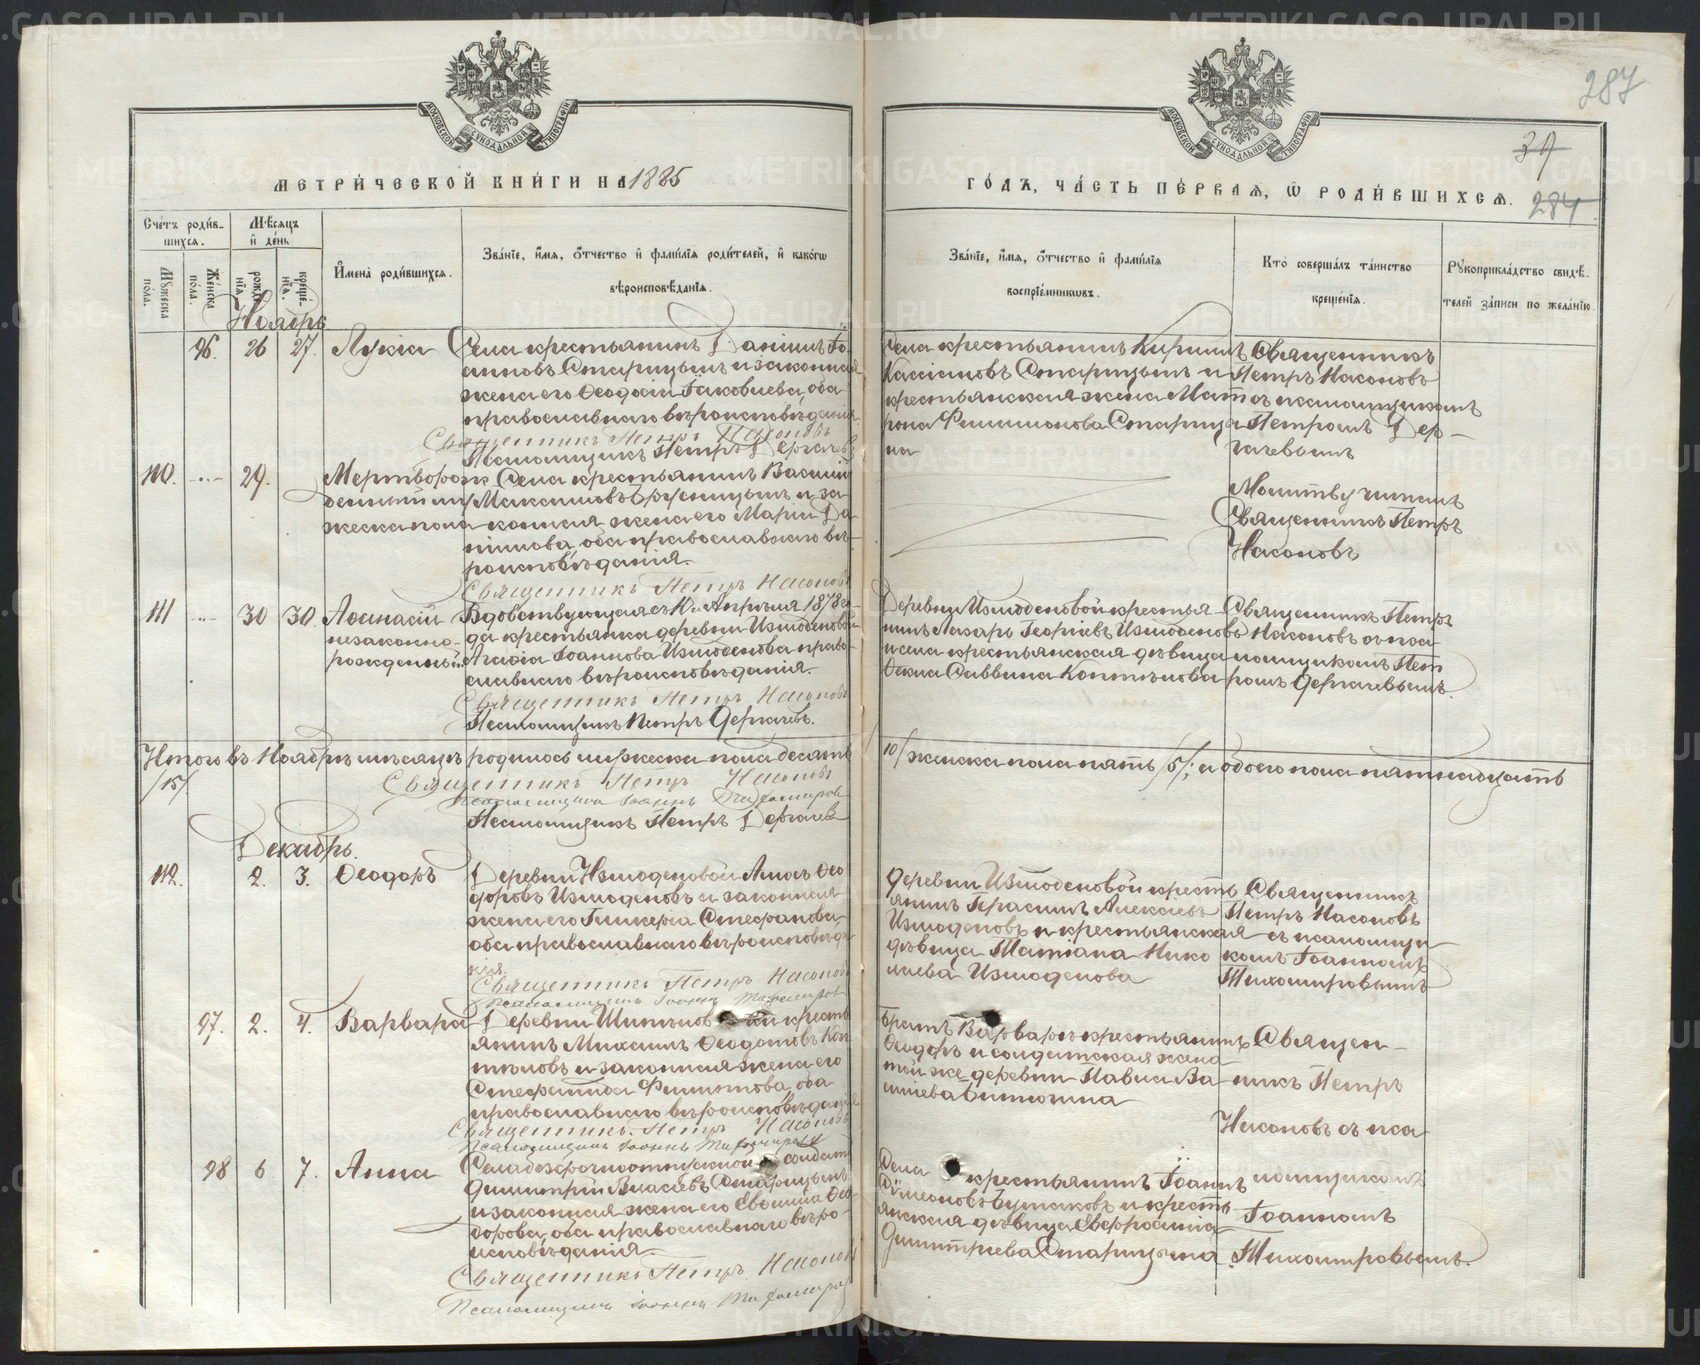 287
37
284
МЕТРИ́ЧЕСКОЙ КНИ́ГИ НА 1885
ГО́ДЪ, ЧА́СТЬ ПЕ́РВАЯ, Ѡ РОДИ́ВШИХСЯ.
Сче́тъ роди́в-
шихся.
Мѣ́сяцъ
и҆ де́нь
Мꙋ́жеска
пола.
Же́нска
пола.
рожде́
нїѧ.
креще́
нїѧ.
И҆мена̀ роди́вшихся.
Зва́нїе, и҆́мѧ, ѻ҆́тчество и҆ фами́лїѧ роди́телей, и҆ како́гѡ
вѣроисповѣ́данїѧ.
Зва́нїе, и҆́мѧ, ѻ҆́тчество и҆ фами́лїѧ
воспрїе́мникѡвъ.
Кто̀ соверша́лъ та́инство
креще́нїѧ.
Рꙋкоприкла́дство свидѣ́-
телей за́писи по жела́нїю.
Ноябрь
96. 26 27. Лукіа
Села крестьянинъ Даніилъ Іо-
анновъ Старицынъ и законная
жена его Ѳеодосія Іаковлева, оба
православнаго вѣроисповѣданія.
Священникъ Петръ Насоновъ
Псаломщикъ Петръ Дергачевъ
Села крестьянинъ Кириллъ
Кассіановъ Старицынъ и
крестьянская жена Мат
рона Филимонова Старицы-
на
Священникъ
Петръ Насоновъ
съ псаломщикомъ
Петромъ Дер-
гачевымъ
110. 29.
Мертворож
денный му
жеска пола
Села крестьянинъ Василій
Максимовъ Брусницынъ и за-
конная жена его Марія Да-
нилова, оба православнаго вѣ-
роисповѣданія.
Священникъ Петръ Насоновъ
Молитву читалъ
Священникъ Петръ
Насоновъ
111 30 30
Аѳанасій
незаконно-
рожденный.
Вдовствующая съ 10го Апрѣля 1878 го-
да крестьянка деревни Измоденовой
Агафіа Іоаннова Измоденова право-
славнаго вѣроисповѣданія.
Священникъ Петръ Насоновъ
Псаломщикъ Петръ Дергачевъ.
Деревни Измоденовой крестья-
нинъ Лазарь Георгіевъ Измоденовъ
и села крестьянская дѣвица
Ѳекла Саввина Коптѣлова
Священникъ Петръ
Насоновъ съ пса
ломщикомъ Пет
ромъ Дергачевымъ.
Итого въ Ноябрѣ мѣсяцѣ родилось мужеска пола десять
/10/ женска пола пять /5/; а обоего пола пятнадцать
/15/
Священникъ Петръ Насоновъ
Псаломщикъ Іоаннъ Тихомировъ
Псаломщикъ Петръ Дергачевъ
Декабрь.
112. 2. 3. Ѳеодоръ
Деревни Измоденовой Аниос Ѳео
доровъ Измоденовъ и законная
жена его Гликерія Стефанова
оба православнаго вѣроисповѣда
нія.
Священникъ Петръ Насоновъ
Псаломщикъ Іоаннъ Тихомировъ
Деревни Измоденовой кресть
янинъ Герасимъ Алексіевъ
Измоденовъ и крестьянская
дѣвица Татіана Нико
лаева Измоденова
Священникъ
Петръ Насоновъ
съ псаломщи-
комъ Іоанномъ
Тихомировымъ
97. 2. 4. Варвара
Деревни Шипѣлов кресть
янинъ Михаилъ Ѳеодотовъ Коп
тѣловъ и законная жена его
Стефанида Филиппова, оба
православнаго вѣроисповѣданія
Священникъ Петръ Насоновъ
Псаломщикъ Іоаннъ Тихомировъ
Братъ Варвары крестьянинъ
Ѳеодоръ и солдатская жена
той же деревни Павла Ва-
сильева Битюгина
Священ-
никъ Петръ
Насоновъ съ пса-
98 6 7. Анна
Села безсрочноотпускной солдатъ
Димитрій Власіевъ Старицынъ
и законная жена его Евѳимія Ѳео
дорова, оба православнаго вѣро-
исповѣданія.
Священникъ Петръ Насоновъ
Псаломщикъ Іоаннъ Тихомировъ
Села крестьянинъ Іоаннъ
Сѵмеоновъ Бутаковъ и кресть
янская дѣвица Евфросинія
Димитріева Старицына
ломщикомъ
Іоанномъ
Тихомировымъ.